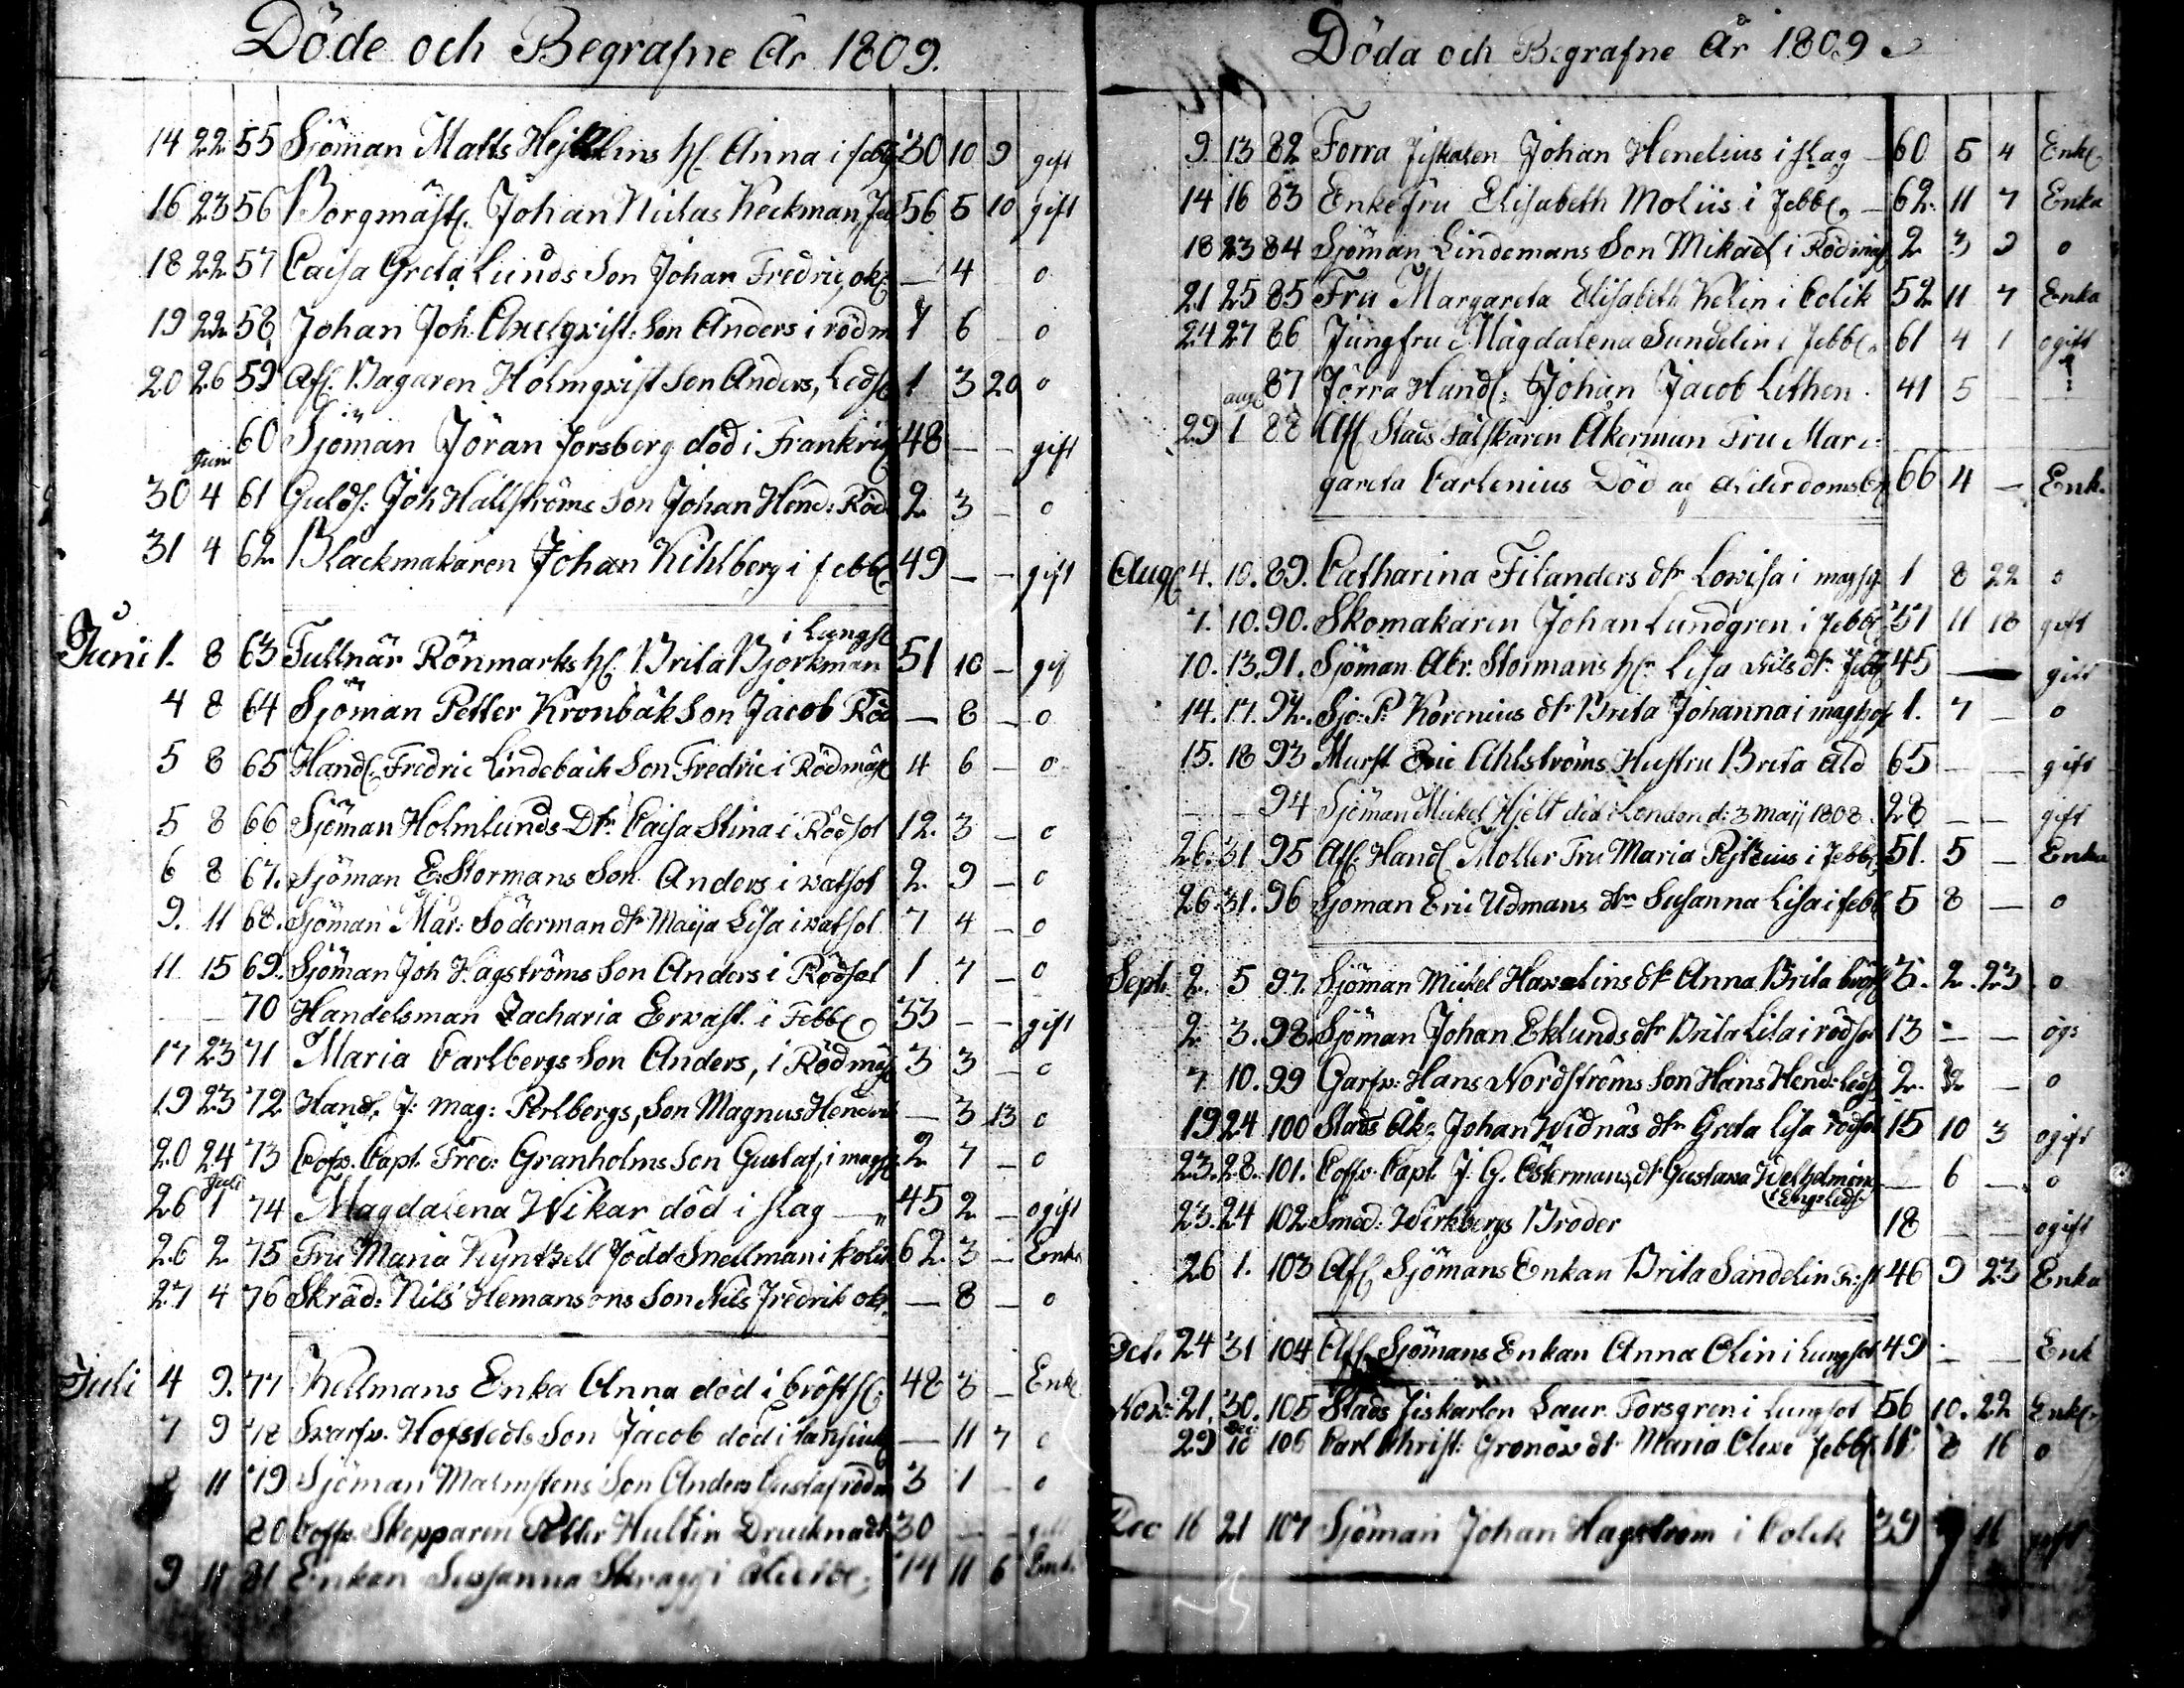 Döde och Begrafne År 1809.
14 22 55 Sjöman Matts Hejklins h/. Anna i febb 30 10 9 gift
16 23 56 Borgmäst. Johan Niclas Keckman, Feb 56 5 10 gift
18 22 57 Caisa Greta Lunds Son Johan Fredric, ok — 4 o
19 22 58 Johan Joh. Axelqvist: Son Anders i rödm 7 6 — o
20 26 59 Afl. Bagaren Holmqvist Son Anders, Leds 1 3 20 o
60 Sjöman Jöran Forsberg död i Frankrik 48 — — gift
Juni
30 4 61 Gulds: Joh Hallströms Son Johan Hend: Röd 2 3 — o
31 4 62 Blackmakaren Johan Kihlberg i febb 49 — — gift
i Lungs
Juni 1. 8 63 Tullnär Rönmarks h/. Brita Björkman 51 10 — gif
4 8 64 Sjöman Petter Kronbäk Son Jacob Röd — 8 — o
5 8 65 Handl. Fredric Lindebäck Son Fredric i Rödmäs 4 6 — o
5 8 66 Sjöman Holmlunds Dtr. Caisa Stina i Rödsot 12. 3 — o
6 8 67. Sjöman E. Stormans Son Anders i watsot 2. 9 — o
9. 11 68. Sjöman Mar: Söderman dtr Maija Lisa i watsot 7 4 — o
11 15 69. Sjöman Joh Hagströms Son Anders i Rödsot 1 7 — o
— — 70 Handelsman Zacharia Erwast i Febb 33 — — gift
17 23 71 Maria Carlbergs Son Anders, i Rödmäs 3 3 — o
19 23 72 Handl. J: Mag: Perlbergs, Son Magnus Hendric — 3 13 o
20 24 73 Cofv. Capt. Fred: Granholms Son Gustaf, i mags 2 7 — o
Juli
26 1 74 Magdalena Wikar död i slag — 45 2 — ogift
26 2 75 Fru Maria Kyntzell född Snellman i kolik 62. 3 — Enka
27 4 76 Skräd: Nils Hemansons Son Nils Fredrik ok. — 8 — o
Juli 4 9. 77 Kellmans Enka Anna död i bröst 48 3 — Enk
7 9 78 Svarfv. Hofsteds Son Jacob död i — 11 7 o
8 11 79 Sjöman Malmstens Son Anders Gustaf rödm 3 1 — o
80 Coffv. Skepparen Petter Hultin Drucknadt 30 — — gift
9 11 81 Enkan Susanna Skragg i ålderd 74 11 6 Enk.
Döda och Begrafne År 1809
9. 13 82 Forra Fiskalen Johan Henelius i slag — 60 5 4 Enkl
14 16 83 Enkefru Elisabeth Moliis i Febb. — 62. 11 7 Enka
18 23 84 Sjöman Lindemans Son Mikael i Rödmäs 2 3 2 o
21 25 85 Fru Margareta Elisabeth Kelin i Colik 52 11 7 Enka
24 27 86 Jungfru Magdalena Sundelin i Febb. 61 4 1 ogift
87 Förra Handl: Johan Jacob Lithen. 41 5 —
aug
29 1 88 Afl Stads Fältskären Åkerman Fru Mar-
gareta Carlenius Död af ålderdoms 66 4 — Enk.
Aug 4. 10. 89. Catharina Filanders dtr Lovisa i mags 1 8 22 o
7. 10. 90. Skomakaren Johan Lundgren i Febb 37 11 18 gift
10. 13. 91. Sjöman Abr. Stormans h/. Lisa Nilsdtr. Febb 45 — gift
14. 17. 92. Sjö: P: Korenius dtr Brita Johanna i maghos 1. 7 — o
15. 18 93 Murst Eric Ahlströms Hustru Brita åld 65 — — gift
— — 94 Sjöman Mickel Hjelt död i London d: 3 Maij 1808. 28 — — gift
26. 31 95 Afl. Handl Moller Fru Maria Pejtzius i Febb 51. 5 — Enka
26. 31. 96 Sjöman Eric Udmans dtr Susanna Lisa i febb 5 8 — o
Sept. 2. 5 97. Sjöman Mickel Havelins dtr Anna Brita bröst 3. 2. 23. o
2 3. 98. Sjöman Johan Eklunds dtr Brita Lisa i rödsot 13 — — ogi
7. 10. 99 Garfv: Hans Nordströms Son Hans Hend: Leds 2. 2 — o
19 24 100 Stads Åk. Johan Widnäs dtr Greta Lisa rödsot 15 10 3 ogift
23. 28. 101. Coffv. Capt J. G. Östermans, dtr Gustava Welhelmina — 6 — o
23. 24 102 Smed: Wirkbergs Broder 18 — — ogift
26 1. 103 Afl Sjömans Enkan Brita Sandelin 46 9 23 Enka
Oct. 24 31 104 Afl. Sjömans Enkan Anna Olin i Lungsot 49 — — Enk
Nov: 21. 30. 105 Stads Fiskarlen Laur. Forsgren i lungsot 56 10. 22 Enkl.
Dec:
29 10 106 Carl Christ: Gronow dtr Maria Olivi Febb 11 8 16 o
Dec 16 21 107 Sjöman Johan Hagström i Colik 39 9 16 gift